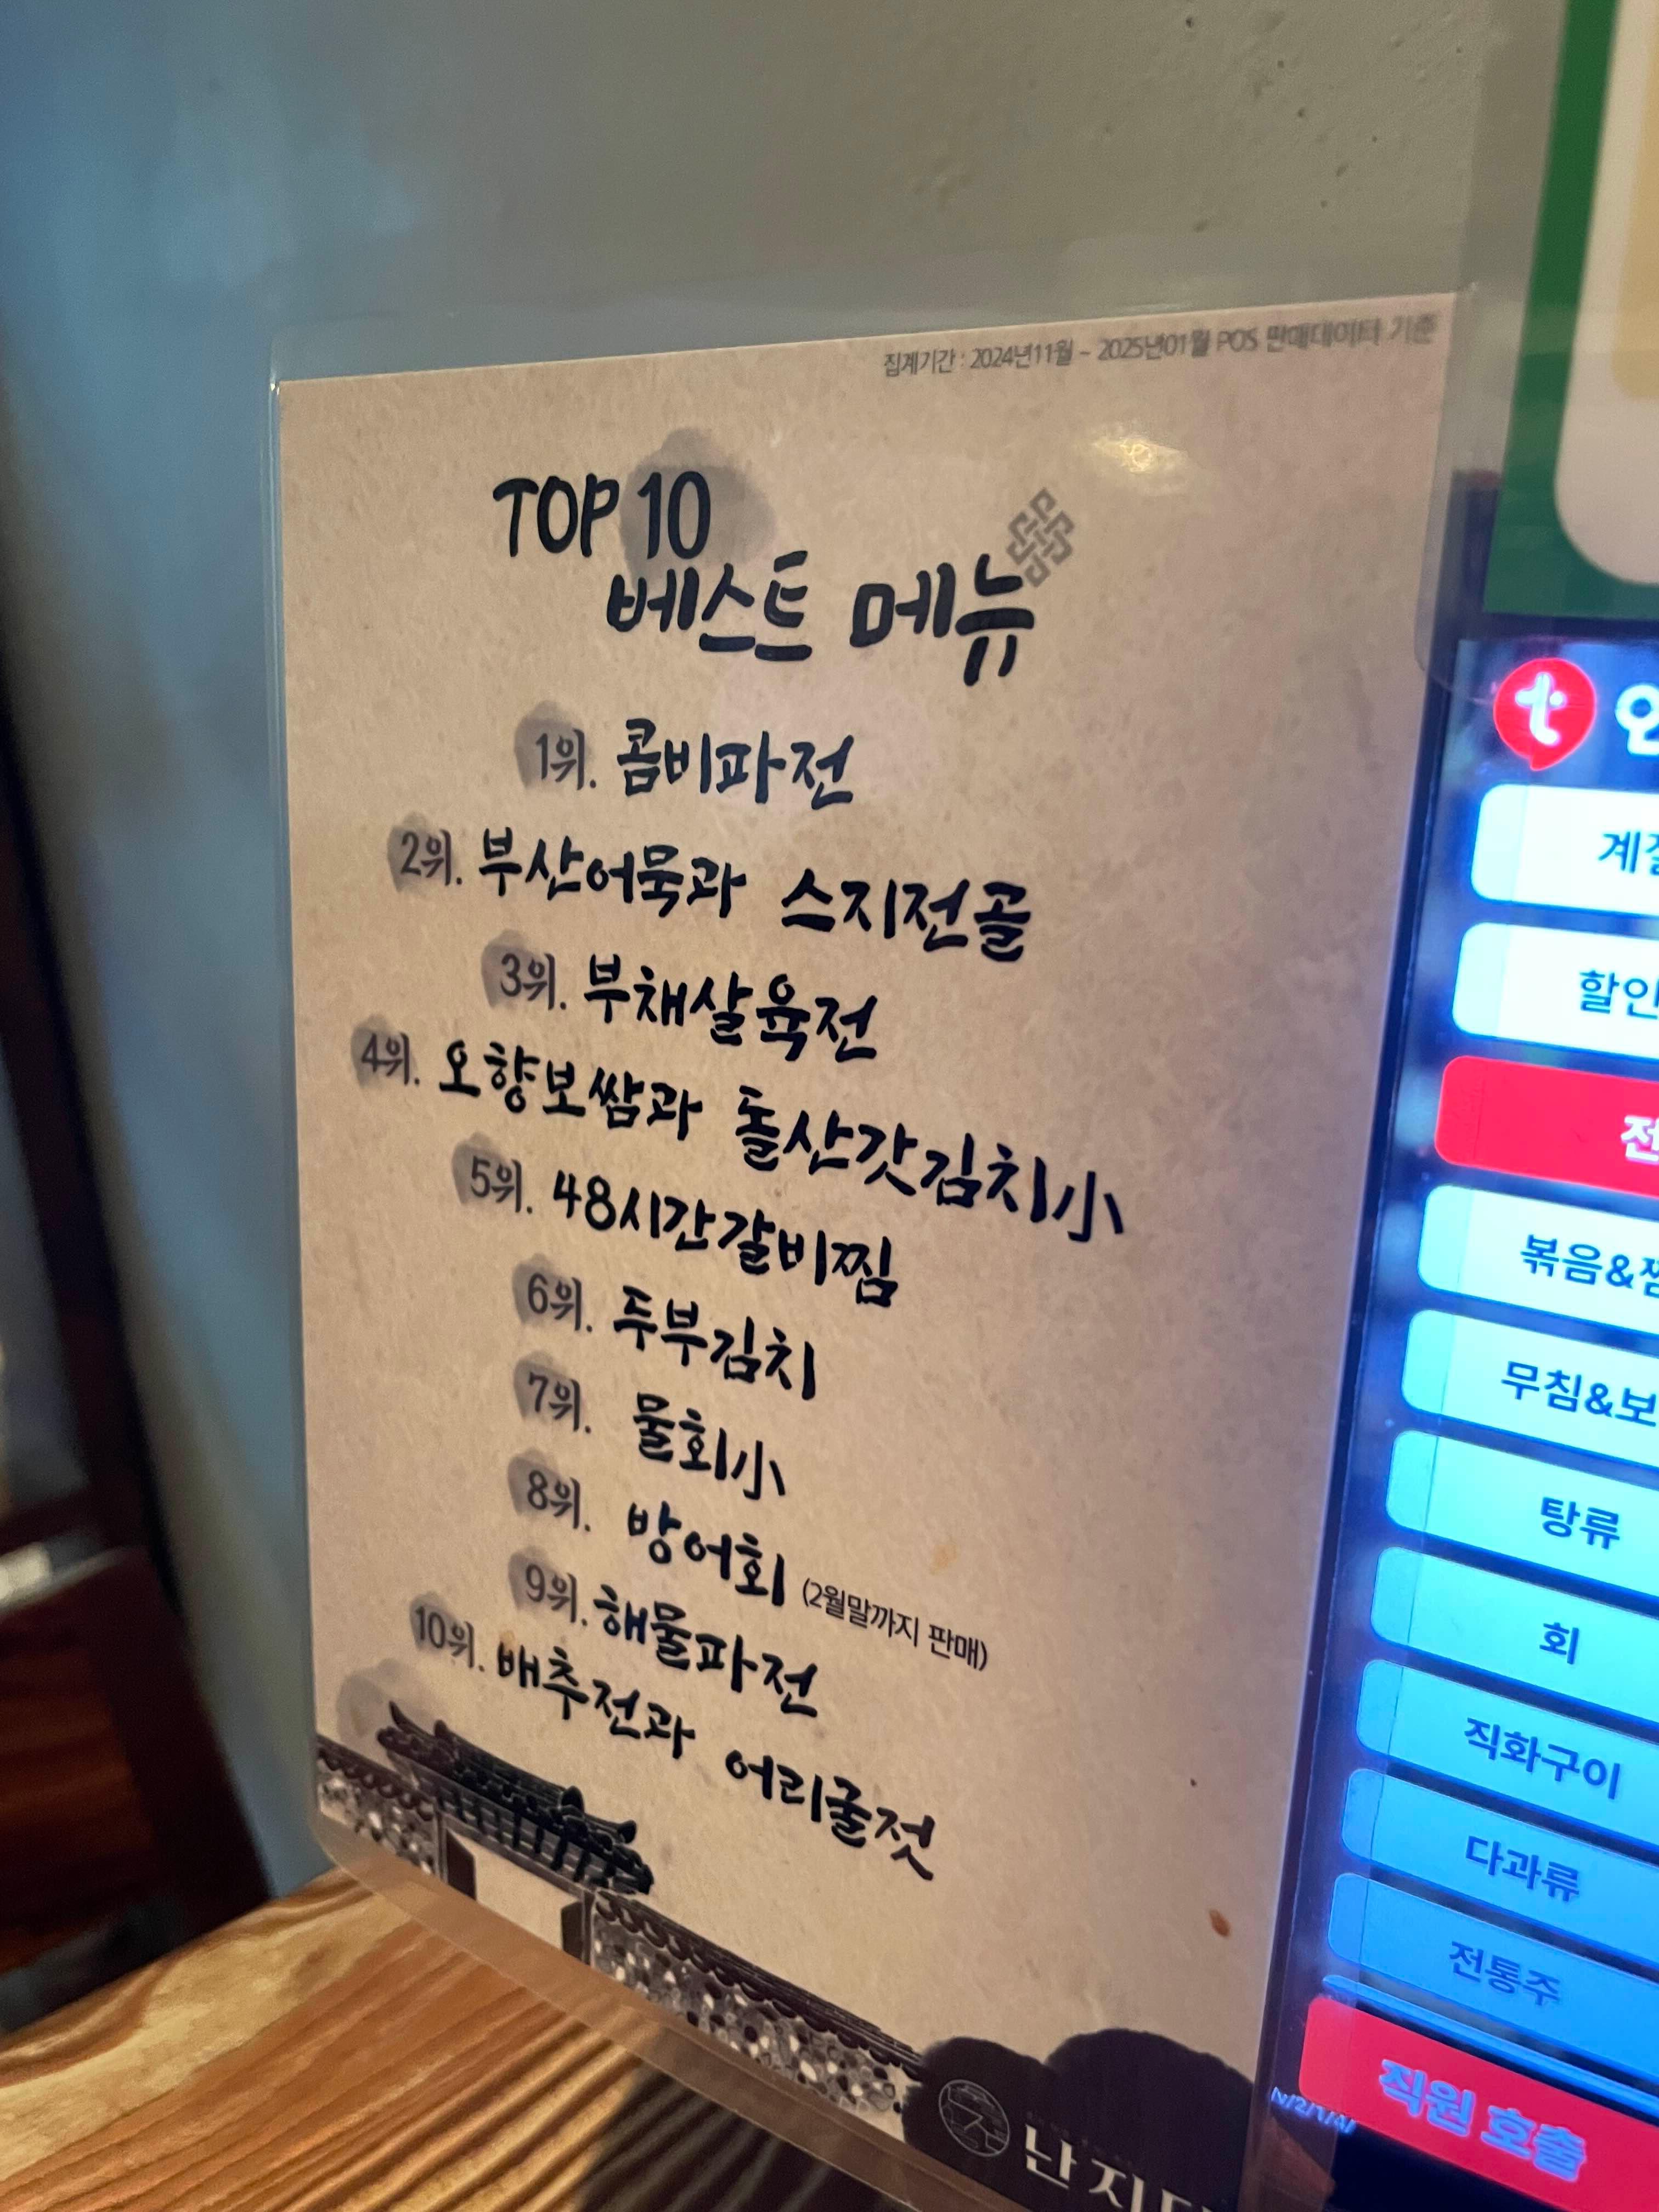 집계기간 : 2024년11월 ~ 2025년01월 POS 판매데이터 기준
TOP 10
베스트 메뉴
1위. 콤비파전
2위. 부산어묵과 스지전골
3위. 부채살육전
4위. 오향보쌈과 돌산갓김치小
5위. 48시간갈비찜
6위. 두부김치
7위. 물회小
8위. 방어회 (2월말까지 판매)
9위. 해물파전
10위. 배추전과 어리굴젓
난지
t
할인
전
볶음&찜
무침&보
탕류
회
직화구이
다과류
전통주
직원 호출